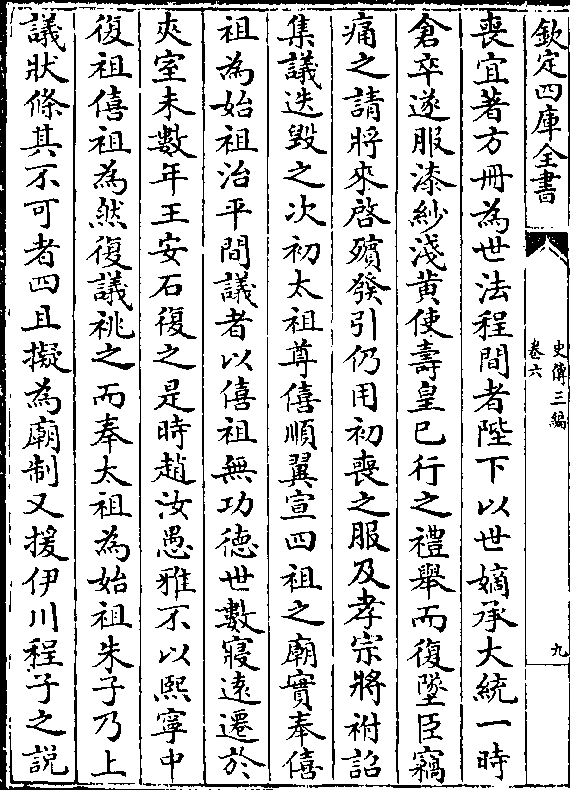 欽定四庫全書
史傳三編
卷六
九
喪宜著方冊為世法程間者陛下以世嫡承大統一時
倉卒遂服漆紗淺黄使壽皇已行之禮舉而復墜臣竊
痛之請將來啓殯發引仍用初喪之服及孝宗將祔詔
集議迭毁之次初太祖尊僖順翼宣四祖之廟實奉僖
祖為始祖治平間議者以僖祖無功徳世數寖遠遷於
夾室未數年王安石復之是時趙汝愚雅不以熙寧中
復祖僖祖為然復議祧之而奉太祖為始祖朱子乃上
議狀條其不可者四且擬為廟制又援伊川程子之説